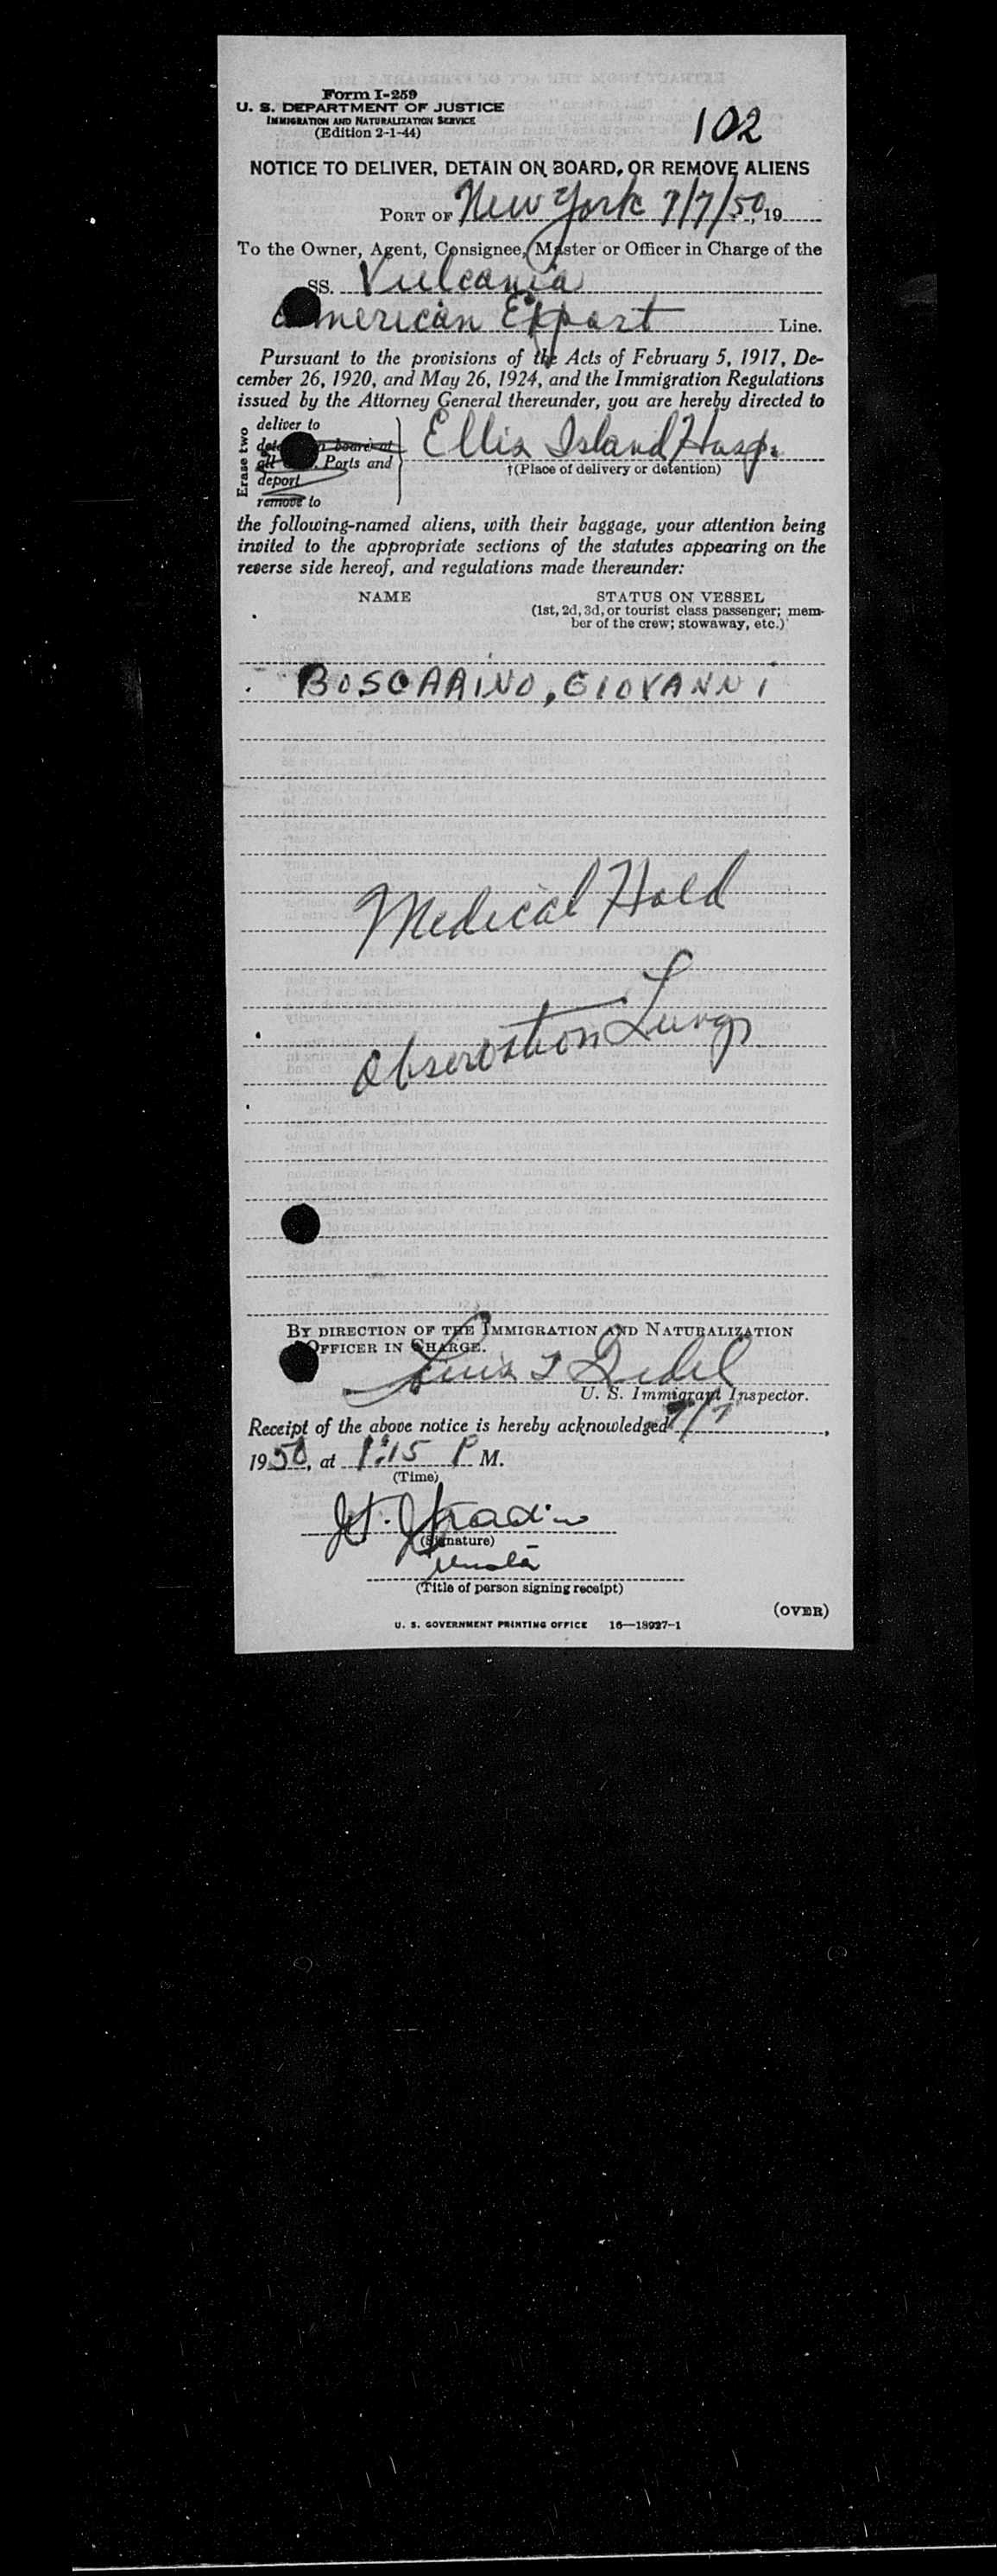 Form I-259
U. S. DEPARTMENT OF JUSTICE
IMMIGRATION AND NATURALIZATION SERVICE
(Edition 2-1-44)
102
NOTICE TO DELIVER, DETAIN ON BOARD, OR REMOVE ALIENS
PORT OF New York 7/7/50, 19
To the Owner, Agent, Consignee, Master or Officer in Charge of the
SS. Vulcania
American Export Line.
Pursuant to the provisions of the Acts of February 5, 1917, De-
cember 26, 1920, and May 26, 1924, and the Immigration Regulations
issued by the Attorney General thereunder, you are hereby directed to
Erase two
deliver to
board at
all Ports and
deport
remove to
Ellis Island Hosp.
†(Place of delivery or detention)
the following-named aliens, with their baggage, your attention being
invited to the appropriate sections of the statutes appearing on the
reverse side hereof, and regulations made thereunder:
NAME STATUS ON VESSEL
(1st, 2d, 3d, or tourist class passenger; mem-
ber of the crew; stowaway, etc.)
BOSCARINO, GIOVANNI
Medical Hold
Observation Lungs
BY DIRECTION OF THE IMMIGRATION AND NATURALIZATION
OFFICER IN CHARGE.
U. S. Immigrant Inspector.
Receipt of the above notice is hereby acknowledged 7/7,
1950, at 1:15 P M.
(Time)
(Signature)
(Title of person signing receipt)
(OVER)
U. S. GOVERNMENT PRINTING OFFICE 16—18927-1